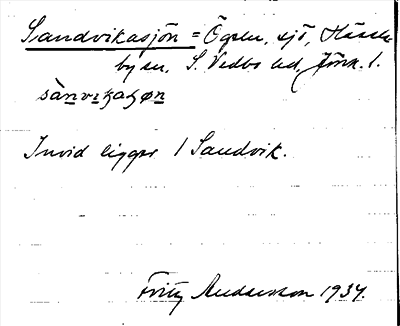 Sandvikasjön = Ögeln, sjö, Hässle-
by sn, S. Vedbo hd, Jönk. l.
sànviʒaʒøn
Invid ligger 1 Sandvik.
Fritz Andersson 1934.